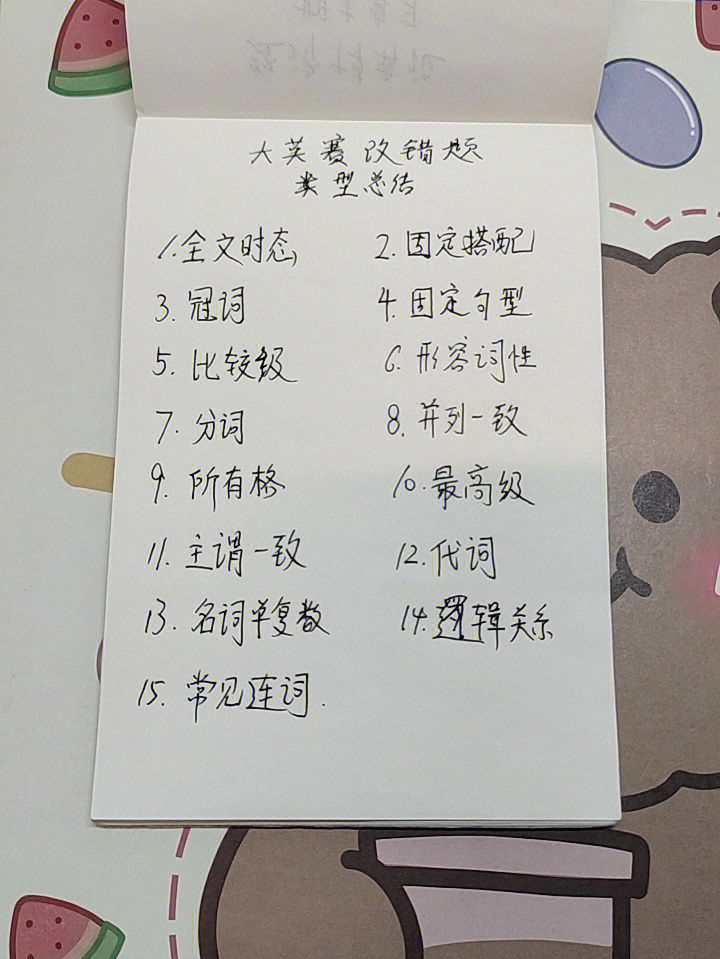 大英赛改错题
类型总结
1.全文时态 2.固定搭配
3.冠词 4.固定句型
5.比较级 6.形容词性
7.分词 8.并列一致
9.所有格 10.最高级
11.主谓一致 12.代词
13.名词单复数 14.逻辑关系
15.常见连词.